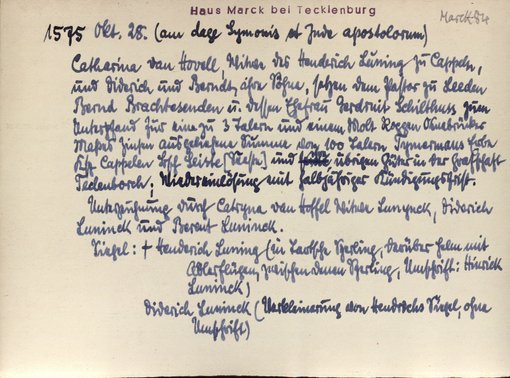 Haus Marck bei Tecklenburg
Marck 84
1575 Okt. 28. (am dage Symonis et Jude apostolorum)
Catharina van Hovell, Witwe des Henderich Lüning zu Cappeln,
und Diderich und Berndt, ihre Söhne, setzen dem Pastor zu Leeden
Bernd Brachtesenden u. dessen Ehefrau Gerdruit Schilthuss zum
Unterpfand für eine zu 3 Talern und einem Molt Roggen Osnabrücker
Maßes Zinsen ausgeliehene Summe von 100 Talern Tymermans Erbe
Ksp. Cappelen Bsch. Seiste und übrigen Güter in der Graffschaft
Teckenborch; Wiedereinlösung mit halbjähriger Kündigungsfrist.
Unterzeichnung durch Catryna van Hoffel Witwe Lunynck, Diderich
Luninck und Berent Luninck.
Siegel: + Henderich Luning (in Tartsche Sperling, darüber Helm mit
Adlerflügen, zwischen denen Sperling, Umschrift: Hinrick
Luninck)
Diderich Luninck (Verkleinerung von Hendrichs Siegel, ohne
Umschrift)